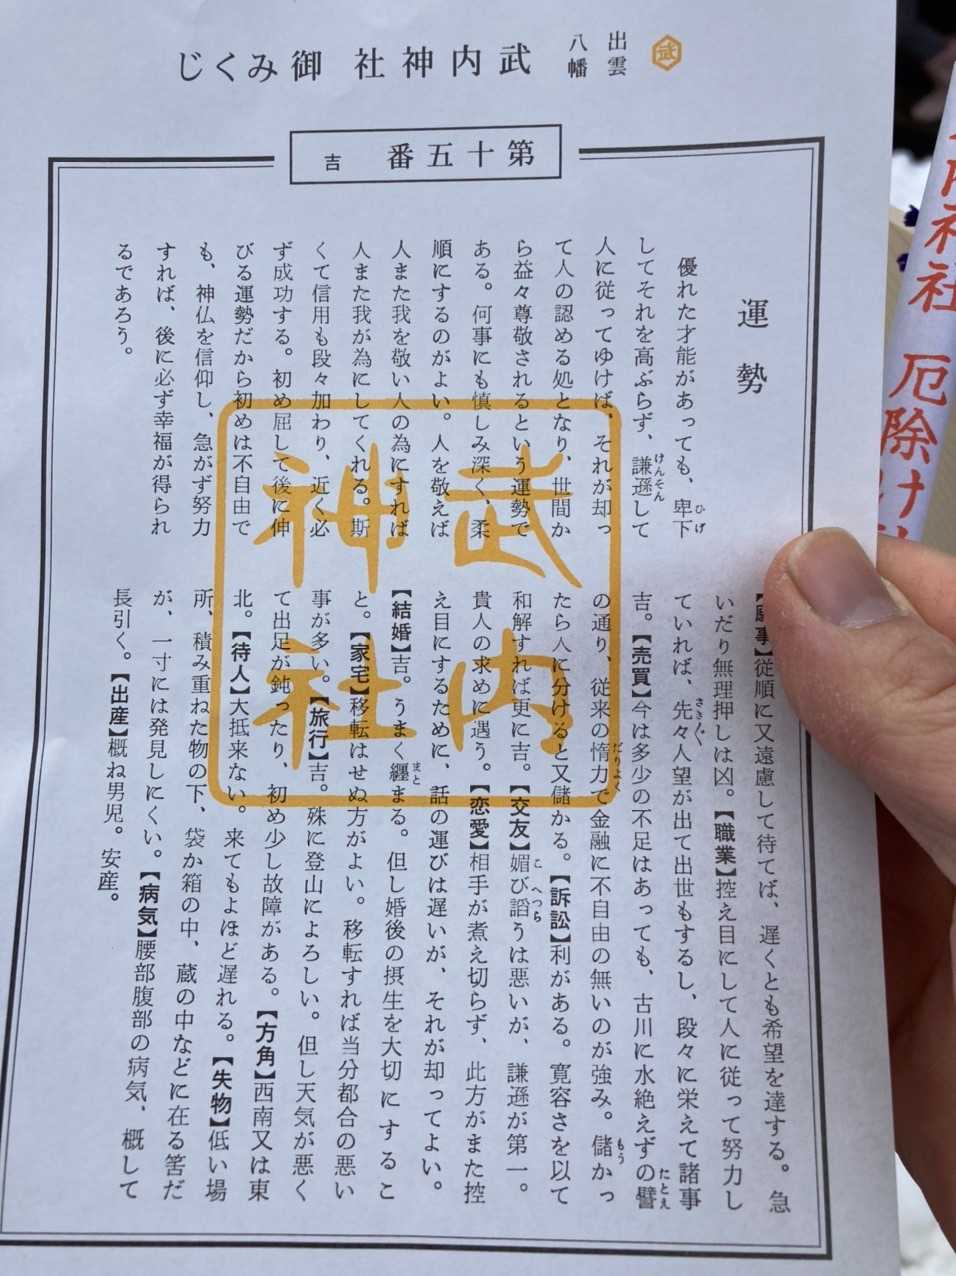 武
出雲
八幡
武内神社 御みくじ
第十五番 吉
運勢
優れた才能があっても、卑下
ひげ
してそれを高ぶらず、謙遜して
けんそん
人に従ってゆけば、それが却っ
て人の認める処となり、世間か
ら益々尊敬されるという運勢で
ある。何事にも慎しみ深く、柔
順にするのがよい。人を敬えば
人また我を敬い人の為にすれば
人また我が為にしてくれる。斯
くて信用も段々加わり、近く必
ず成功する。初め屈して後に伸
びる運勢だから初めは不自由で
も、神仏を信仰し、急がず努力
すれば、後に必ず幸福が得られ
るであろう。
【願事】従順に又遠慮して待てば、遅くとも希望を達する。急
いだり無理押しは凶。【職業】控え目にして人に従って努力し
ていれば、先々人望が出て出世もするし、段々に栄えて諸事
さきざき
吉。【売買】今は多少の不足はあっても、古川に水絶えずの譬
たとえ
の通り、従来の惰力で金融に不自由の無いのが強み。儲かっ
だりょく
もう
たら人に分けると又儲かる。【訴訟】利がある。寛容さを以て
和解すれば更に吉。【交友】媚び諂うは悪いが、謙遜が第一。
こ へつら
貴人の求めに遇う。【恋愛】相手が煮え切らず、此方がまた控
え目にするために、話の運びは遅いが、それが却ってよい。
【結婚】吉。うまく纏まる。但し婚後の摂生を大切にするこ
まと
と。【家宅】移転はせぬ方がよい。移転すれば当分都合の悪い
事が多い。【旅行】吉。殊に登山によろしい。但し天気が悪く
て出足が鈍ったり、初め少し故障がある。【方角】西南又は東
北。【待人】大抵来ない。来てもよほど遅れる。【失物】低い場
所、積み重ねた物の下、袋か箱の中、蔵の中などに在る筈だ
が、一寸には発見しにくい。【病気】腰部腹部の病気、概して
長引く。【出産】概ね男児。安産。
武内
神社
神社 厄除け